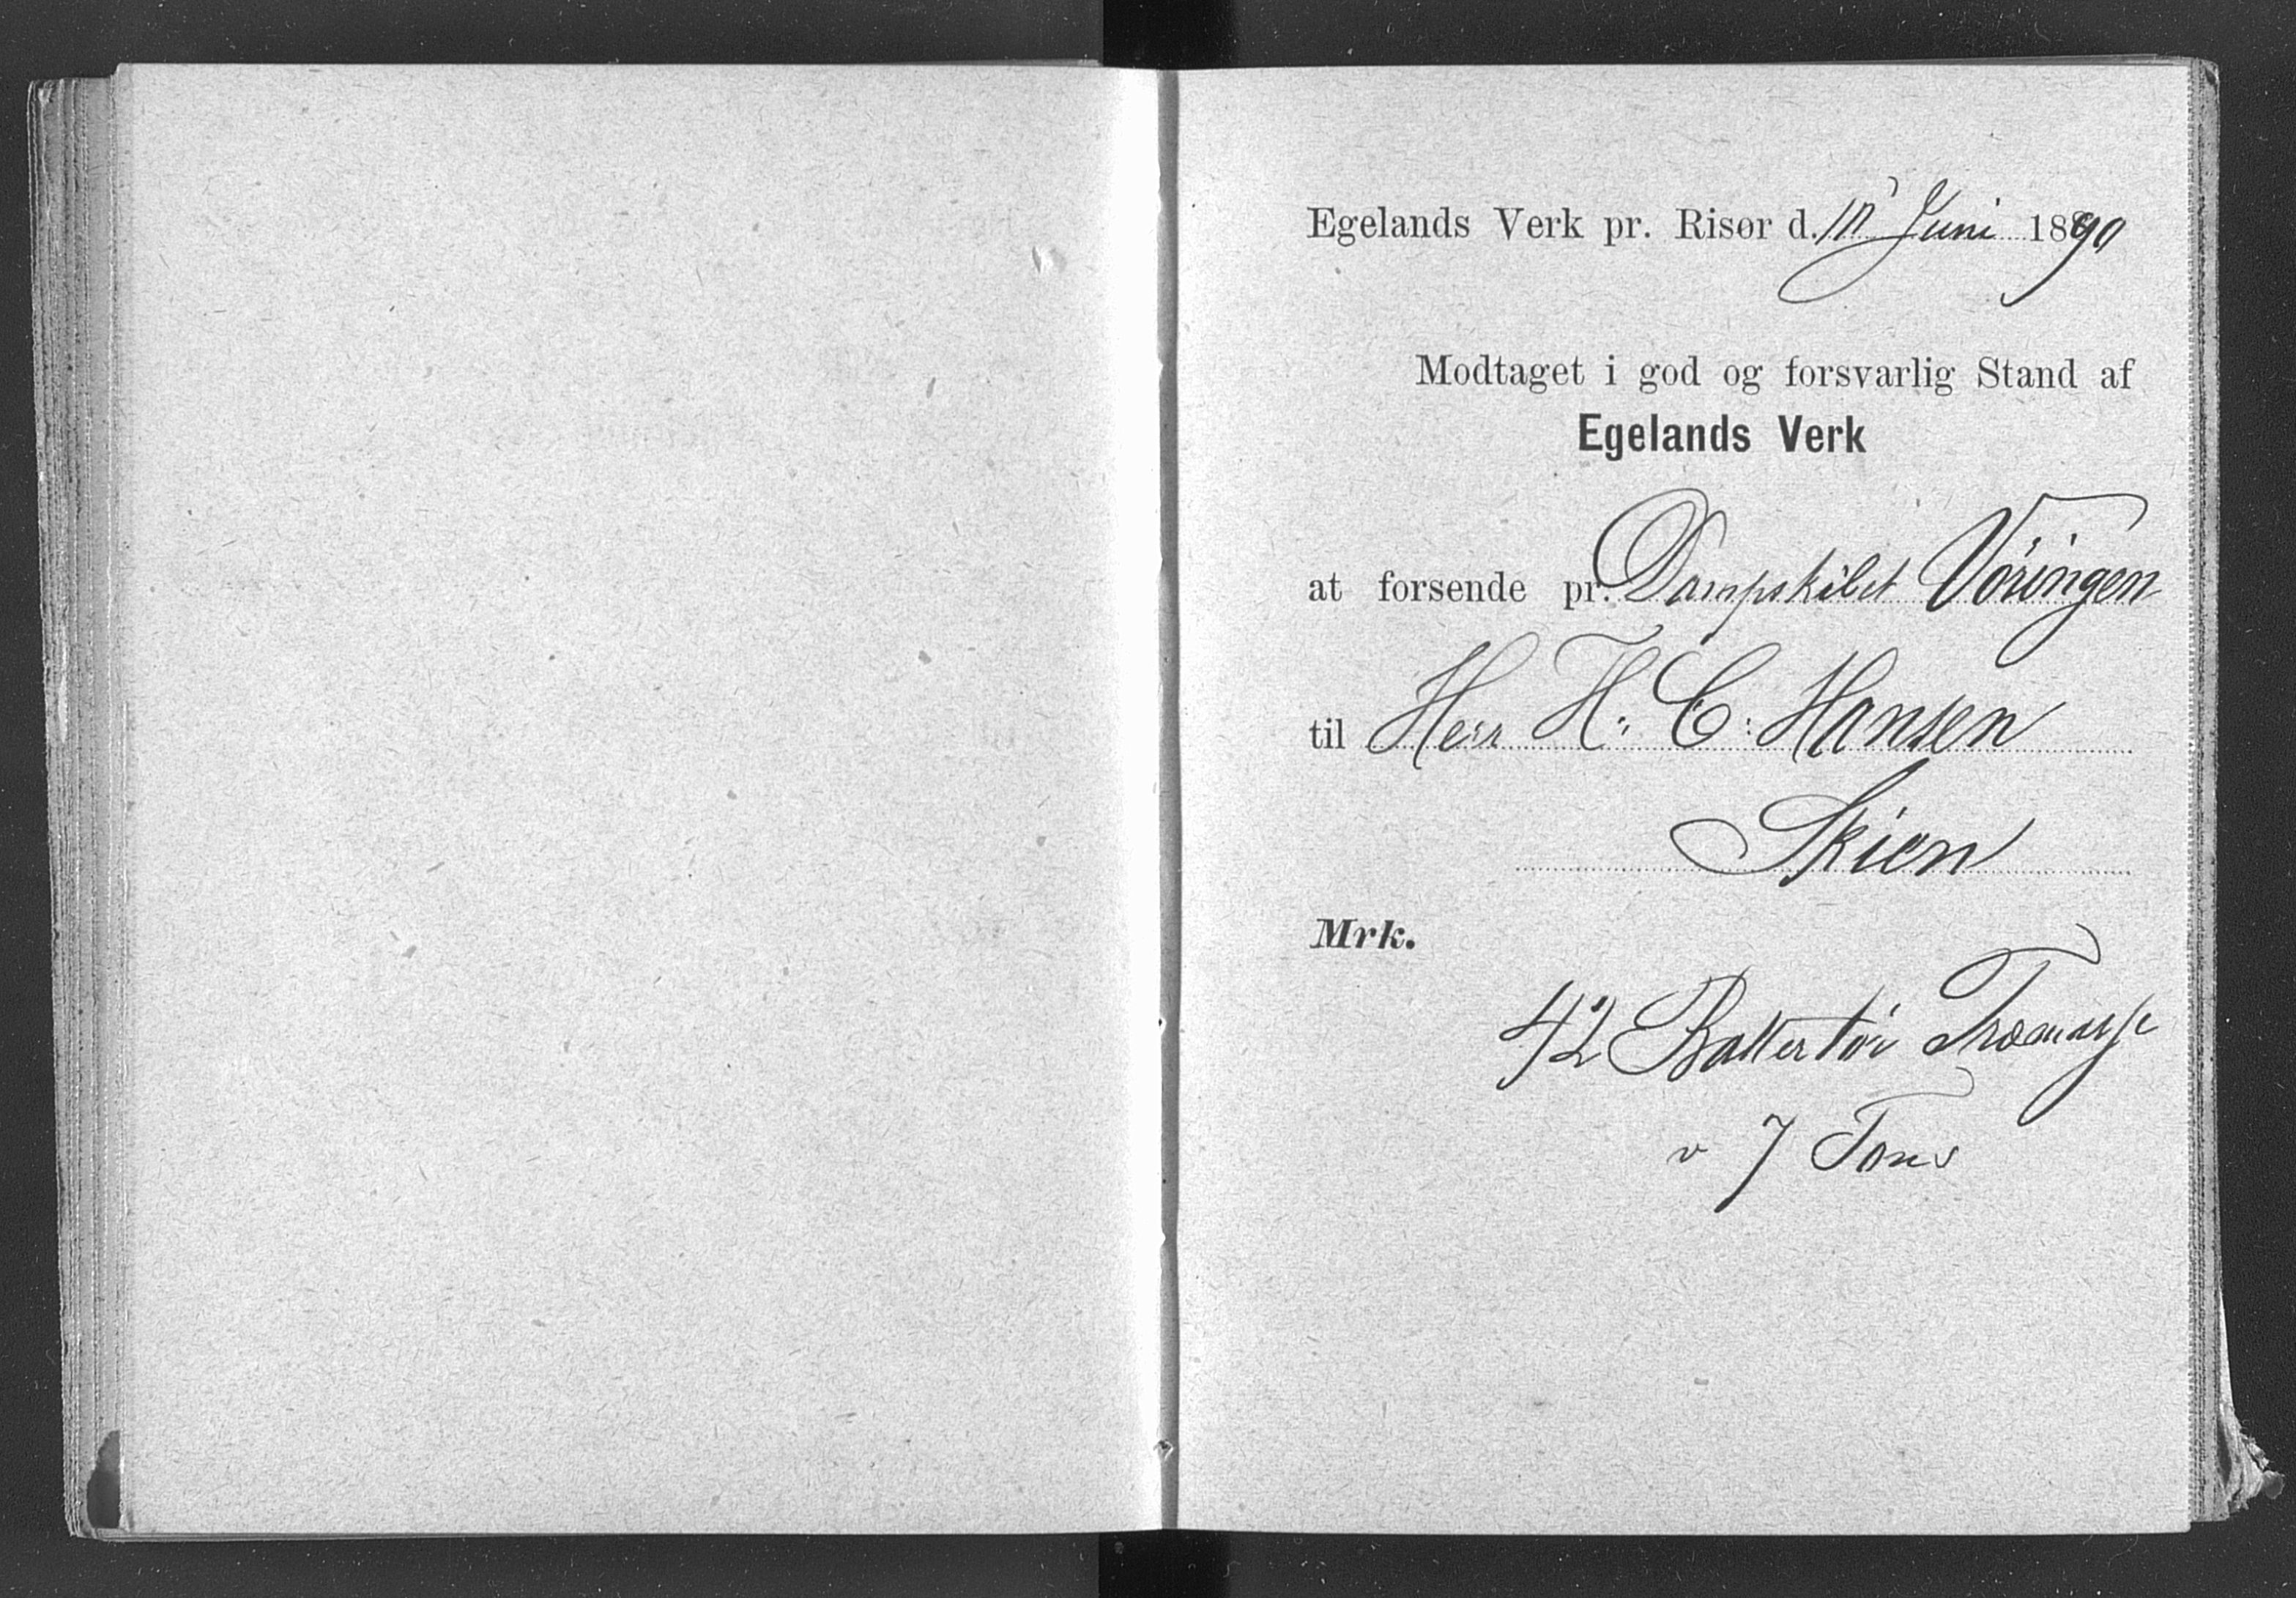 Egelands Verk pr. Risør d. Juni 1890
Modtaget i god og forsvarlig Stand af
Egelands Verk
at forsende pr. Dampskibet Vöringen
til Herr H. C. Hansen
Skien
Mrk.
42 Baller tör Træmasse
v 7 Tons